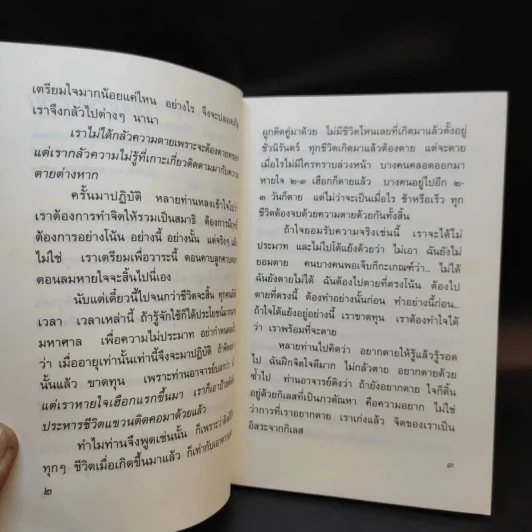 เตรียมใจมากน้อยแค่ไหน อย่างไร จึงจะปลอดภัย
เราจึงกลัวไปต่างๆ นานา
เราไม่ได้กลัวความตายเพราะจะต้อง
แต่เรากลัวความไม่รู้ที่เกาะเกี่ยวติดตามมากับความ
ตายต่างหาก
ครั้นมาปฏิบัติ หลายท่านหลงเข้าใจ
เราต้องการทำจิตให้รวมเป็นสมาธิ ต้องการ
ต้องการอย่างโน้น อย่างนี้ อย่างนั้น แต่จริงๆ
ไม่ใช่ เราเตรียมเพื่อวาระนี้ ตอนคาบลูกคาบดอก
ตอนลมหายใจจะสิ้นไปนี่เอง
นับแต่เดี๋ยวนี้ไปจนกว่าชีวิตจะสิ้น ทุกคนมี
เวลา เวลาเหล่านี้ ถ้ารู้จักใช้ก็ได้ประโยชน์
มหาศาล เพื่อความไม่ประมาท อย่ากำหนด
ว่า เมื่ออายุเท่านั้นเท่านี้จึงจะมาปฏิบัติ
นั้นแล้ว ขาดทุน เพราะท่านอาจารย์บอกว่า
แต่เราหายใจเฮือกแรกขึ้นมา เราก็เอาป้าย
ประหารชีวิตแขวนติดคอมาด้วยแล้ว
ทำไมท่านจึงพูดเช่นนั้น ก็เพราะว่า
ทุกๆ ชีวิตเมื่อเกิดขึ้นมาแล้ว ก็เท่ากับเอาความ
๒
ผูกติดคู่มาด้วย ไม่มีชีวิตไหนเลยที่เกิดมาแล้วตั้งอยู่
ชั่วนิรันดร์ ทุกชีวิตเกิดมาแล้วต้องตาย แต่จะตาย
เมื่อไรไม่มีใครทราบล่วงหน้า บางคนคลอดออกมา
หายใจ ๒-๓ เฮือกก็ตายแล้ว บางคนอยู่ไปอีก ๒-
๓ วันก็ตาย แต่ไม่ว่าจะเป็นเมื่อไร ช้าหรือเร็ว ทุก
ชีวิตต้องจบด้วยความตายด้วยกันทั้งสิ้น
ถ้าใจยอมรับความจริงเช่นนี้ เราจะได้ไม่
ประมาท และไม่ไปโต้แย้งด้วยว่า ไม่เอา ฉันยังไม่
ยอมตาย คนบางคนพอเจ็บก็กะเกณฑ์ว่า.. ไม่ได้
ฉันยังตายไม่ได้ ฉันต้องไปตายที่ตรงโน้น ต้องไป
ตายที่ตรงนี้ ต้องทำอย่างนั้นก่อน ทำอย่างนี้ก่อน..
ถ้าใจโต้แย้งอยู่อย่างนี้ เราขาดทุน เราต้องทำใจได้
ว่า เราพร้อมที่จะตาย
หลายท่านไปคิดว่า อยากตายให้รู้แล้วรู้รอด
ไป ฉันฝึกจิตใจดีมาก ไม่กลัวตาย อยากตายด้วย
ซ้ำไป ท่านอาจารย์ติงว่า ถ้ายังอยากตาย ใจก็ดิ้น
อยู่ด้วยกิเลสที่เป็นภวตัณหา คือความอยาก ไม่ใช่
ว่าการที่เราอยากตาย เราเก่งแล้ว จิตของเราเป็น
อิสระจากกิเลส
๓